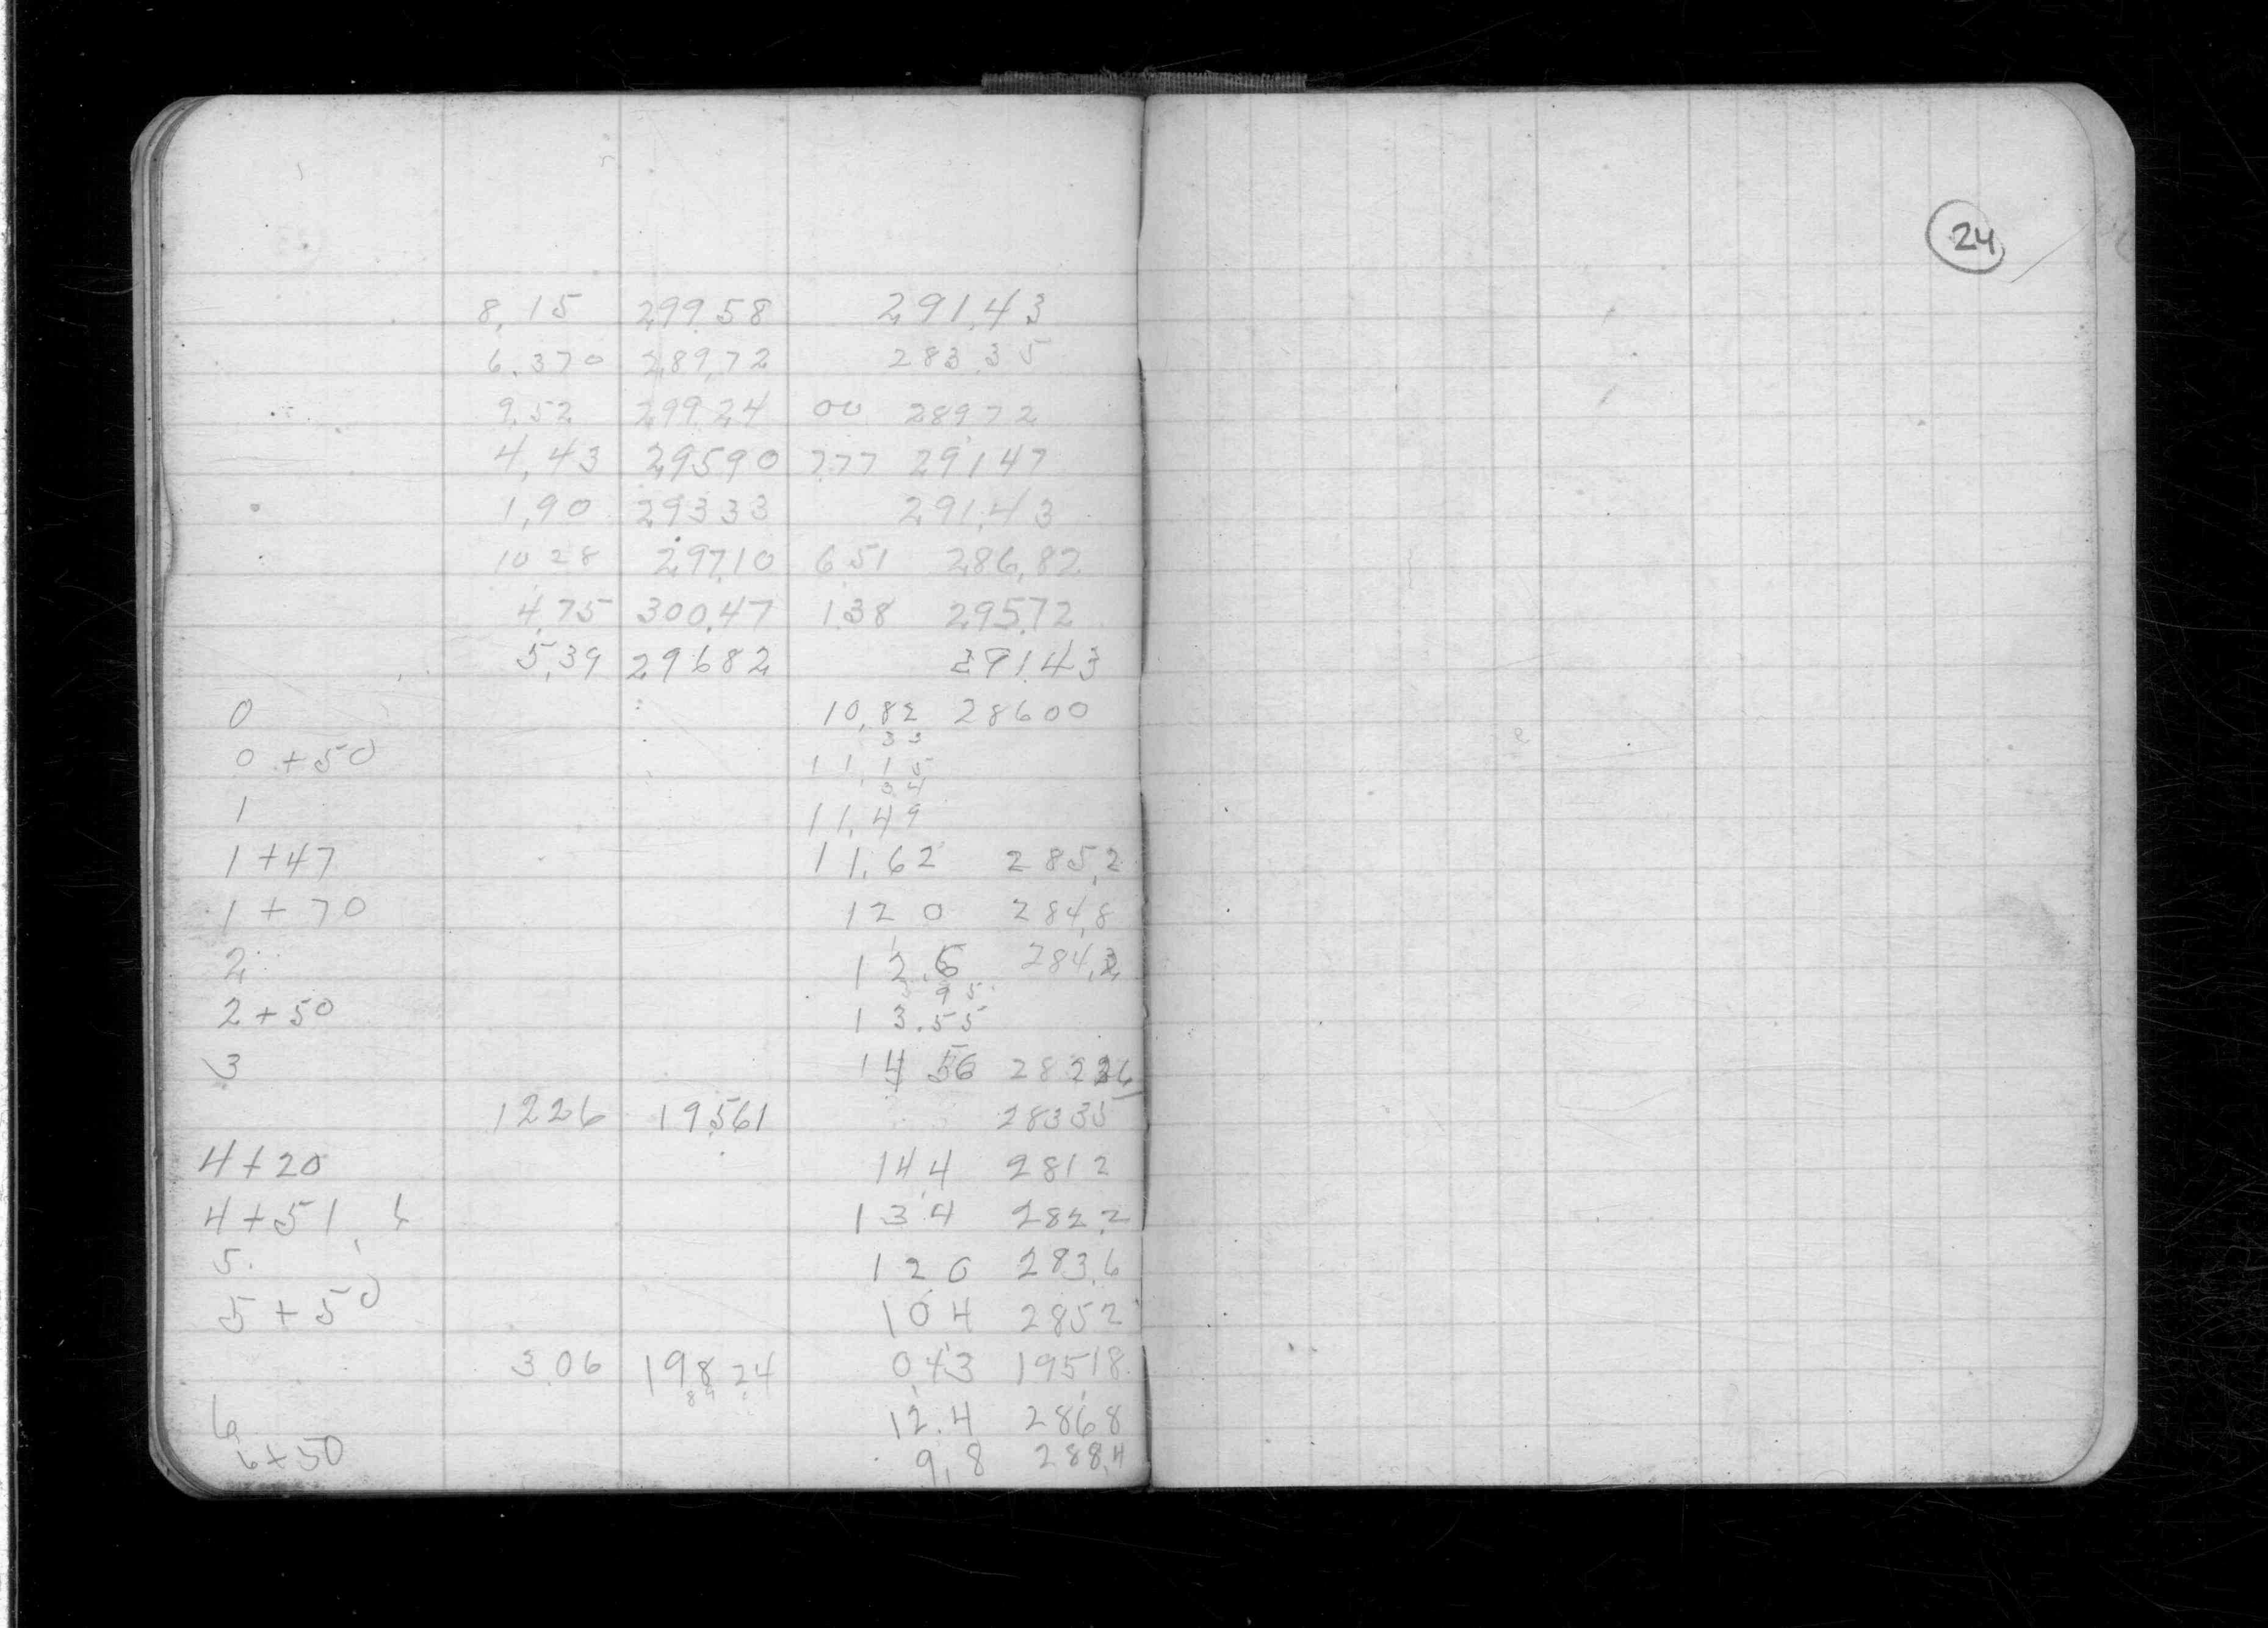 24
8,15 299.58 291.43
6.370 289,72 283.35
9,52 299.24 00 28972
4,43 29590 7.77 29147
1,90 29333 291.43
10 28 297.10 6 51 286,82
4.75 300.47 1.38 295.72
5,39 29682 291.43
0 10,82 28600
33
0+50 11,15
04
1 11,49
1+47 11,62 285,2
1+70 12 0 284,8
2 12.6
95
2+50 13.55
3 14 56
1226 19561 28335
4+20 14 4 2812
4+51 13 4 282.2
5. 12 0 283.6
5+50 10 4 2852
3.06 198 24 0,43 19518
84
6 12.4 2868
6+50 9,8 288,4